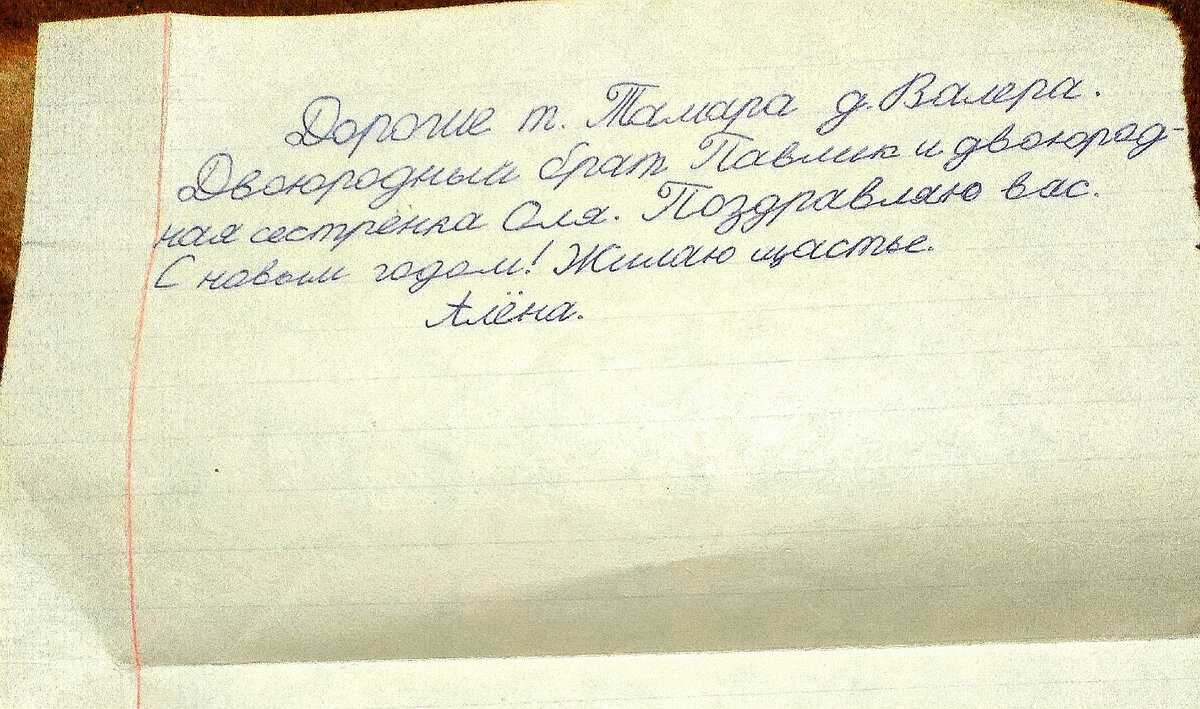 Дорогие т. Тамара д. Валера.
Двоюродный брат Павлик и двоюрод-
ная сестрёнка Оля. Поздравляю вас.
С новым годом! Жилаю щастье.
Алёна.